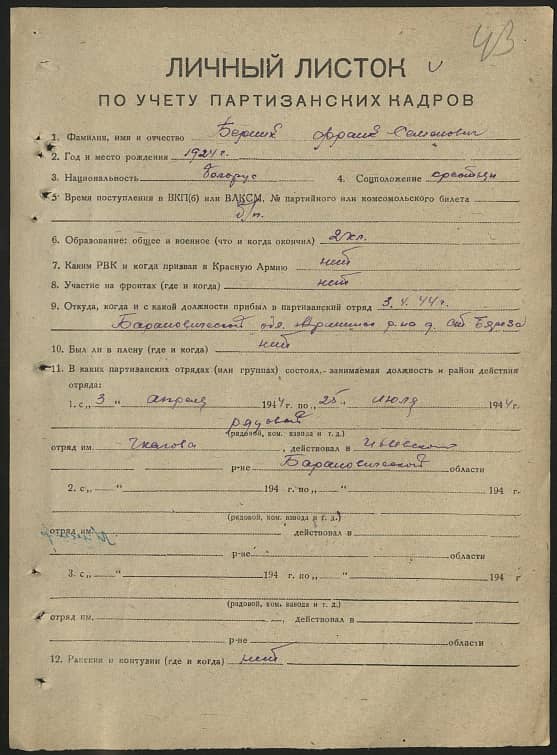 43
ЛИЧНЫЙ ЛИСТОК
ПО УЧЕТУ ПАРТИЗАНСКИХ КАДРОВ
1. Фамилия, имя и отчество Франц Семенович
2. Год и место рождения 1924 г.
3. Национальность белорус 4. Соцположение
5. Время поступления в ВКП(б) или ВЛКСМ, № партийного или комсомольского билета
б/п.
6. Образование: общее и военное (что и когда окончил) 2 кл.
7. Каким РВК и когда призван в Красную Армию нет
8. Участие на фронтах (где и когда) нет
9. Откуда, когда и с какой должности прибыл в партизанский отряд 3. 4. 44 г.
Барановической обл. р-на д. Береза
10. Был ли в плену (где и когда) нет
11. В каких партизанских отрядах (или группах) состоял, занимаемая должность и район действия
отряда:
1. с „ 3 “ апреля 1944 г. по „ 25 “ июля 1944 г.
рядовой
(рядовой, ком. взвода и т. д.)
отряд им. Чкалова , действовал в Ивьевском
р-не Барановической области
2. с „ “ 194 г. по „ “ 194 г.
(рядовой, ком. взвода и т. д.)
отряд им. действовал в
р-не области
3. с „ “ 194 г. по „ “ 194 г
(рядовой, ком. взвода и т. д.)
отряд им. , действовал в
р-не области
12. Ранения и контузии (где и когда) нет